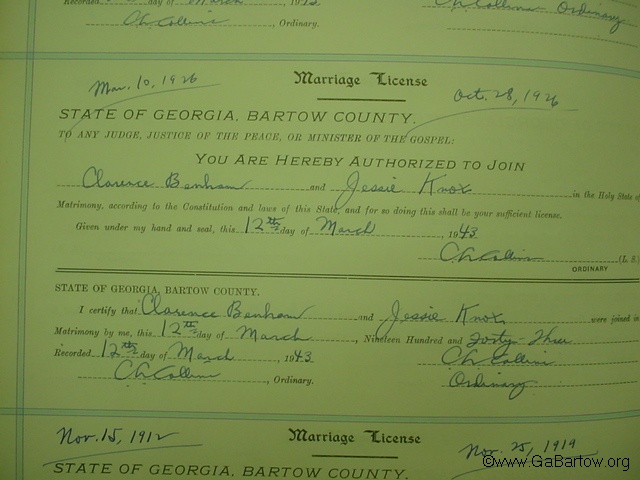 Recorded day of March, 1943 Ordinary
C.A. Collins, Ordinary.
Marriage License
Mar. 10, 1926 Oct. 28, 1926
STATE OF GEORGIA, BARTOW COUNTY.
TO ANY JUDGE, JUSTICE OF THE PEACE, OR MINISTER OF THE GOSPEL:
YOU ARE HEREBY AUTHORIZED TO JOIN
Clarence Benham and Jessie Knox in the Holy State of
Matrimony, according to the Constitution and laws of this State, and for so doing this shall be your sufficient license.
Given under my hand and seal, this 12th day of March 1943
C.A. Collins (L. S.)
ORDINARY
STATE OF GEORGIA, BARTOW COUNTY.
I certify that Clarence Benham and Jessie Knox were joined in
Matrimony by me, this 12th day of March, Nineteen Hundred and forty-three
Recorded 12th day of March, 1943 C.A. Collins
C.A. Collins, Ordinary. Ordinary
Nov. 15, 1912 Marriage License Nov. 25, 1919
STATE OF GEORGIA, BARTOW COUNTY.
©www.GaBartow.org